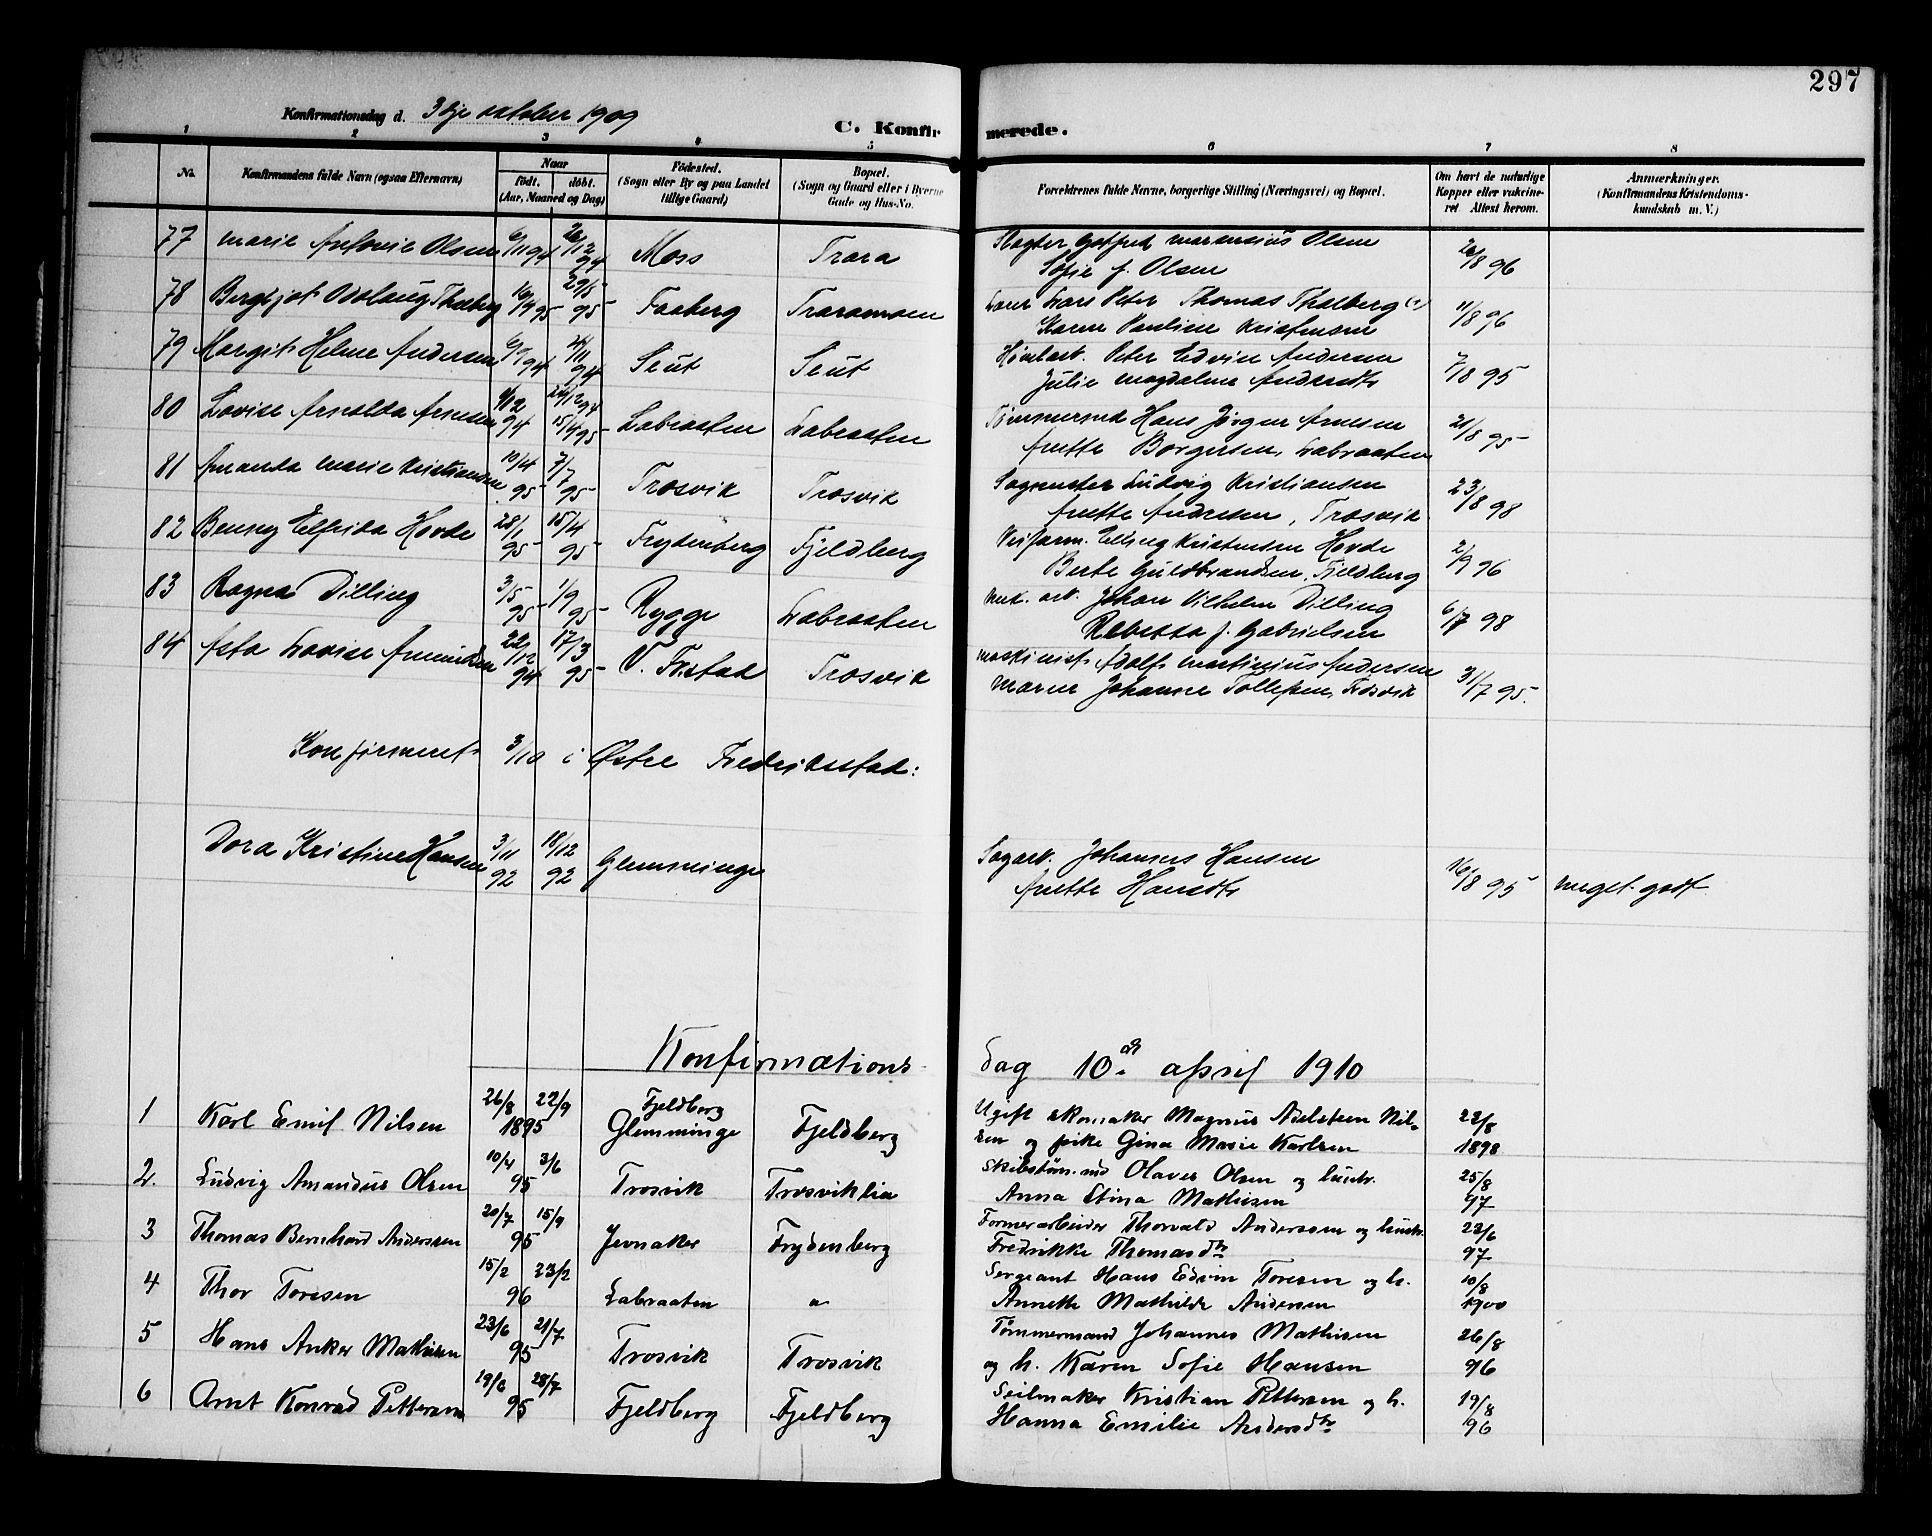 297
Konfirmationsdag d. 3dje oktober 1909
C. Konfirmerede.
1 2 3 4 5 6 7 8
No. Konfirmandens fulde Navn (ogsaa Efternavn) Naar født. døbt. (Aar, Maaned og Dag) Fødested. (Sogn eller By og paa Landet tillige Gaard) Bopæl. (Sogn og Gaard eller i Byerne Gade og Hus-No. Forældrenes fulde Navne, borgerlige Stilling (Næringsvei) og Bopæl. Om havt de naturlige Kopper eller vakcineret Attest herom. Anmærkninger. (Konfirmandens Kristendomskundskab m. V.)
77 Marie Antonie Olsen 6/11 94 26/12 94 Moss Trara Slagter Gotfred Marensius Olsen 26/8 96
Sofie f. Olsen
78 Bergljot Odlaug Thalberg 16/4 95 29/5 95 Faaberg Traramoen Lars Peter Thomas Thalberg 11/8 96
Karen Pauline Kristensen
79 Margit Helene Andersen 6/9 94 24/11 94 Seut Seut Høvlarb. Peter Edvin Andersen 7/8 95
Julie Magdalene Andersdtr
80 Lovise Arnolda Arnesen 9/12 94 26/12 94 15/4 95 Labraaten Labraaten Tømmermd Hans Jørgen Arnesen 21/8 95
Anette Borgersen, Labraaten
81 Amanda Marie Kristiansen 10/4 95 7/7 95 Trosvik Trosvik Sagmester Ludvig Kristiansen 23/8 98
Anette Andresen, Trosvik
82 Benny Elfrida Hovde 28/1 95 15/4 95 Frydenberg Fjeldberg Veiform. Elling Kristensen Hovde 2/9 96
Berte Guldbrandsen, Fjeldberg
83 Ragna Dilling 3/5 95 1/9 95 Rygge Labraaten Mek. arb. Johan Vilhelm Dilling 6/7 98
Rebekka f. Gabrielsen
84 Asta Lovise Amundsen 22/12 94 17/3 95 V. Fr.stad Trosvik Maskinist Adolf Martinius Andersen 31/7 95.
Maren Johanne Tollefsen, Trosvik
Konfirmeret 3/10 i Østre Fredrikstad:
Dora Kristine Hansen 3/11 92 18/12 92 Glemminge Sagarb. Johannes Hansen 16/8 95 meget godt
Anette Hansdtr
Konfirmations dag 10de april 1910
1 Karl Emil Nilsen 26/8 22/9 1895 Fjeldberg Glemminge Fjeldberg Ugift skomaker Magnus Adelsteen Nil- 22/8
sen og pike Gina Marie Karlsen 1898
2. Ludvig Amandus Olsen 10/4 3/6 95 Trosvik Trosviklia Skibstøm.md Olaves Olsen og hustr. 25/8
Anna Stina Mathisen 97
3 Thomas Bernhard Anderssen 20/7 15/9 95 Jevnaker Frydenberg Formerarbeider Thorvald Anderssen og hustr. 22/6
Fredrikke Thomasdtr 97
4 Thor Toresen 15/2 23/2 96 Labraaten " Sergeant Hans Edvin Toresen og h. 10/8
Annette Mathilde Andersen 1900
5 Hans Anker Mathisen 23/6 21/7 95 Trosvik Trosvik Tømmermand Johannes Mathisen 26/8
og h. Karen Sofie Hansen 96
6 Arnt Konrad Pettersen 19/6 28/7 95 Fjeldberg Fjeldberg Seilmaker Kristian Pettersen og h. 19/8
Hanna Emilie Andersdtr 96